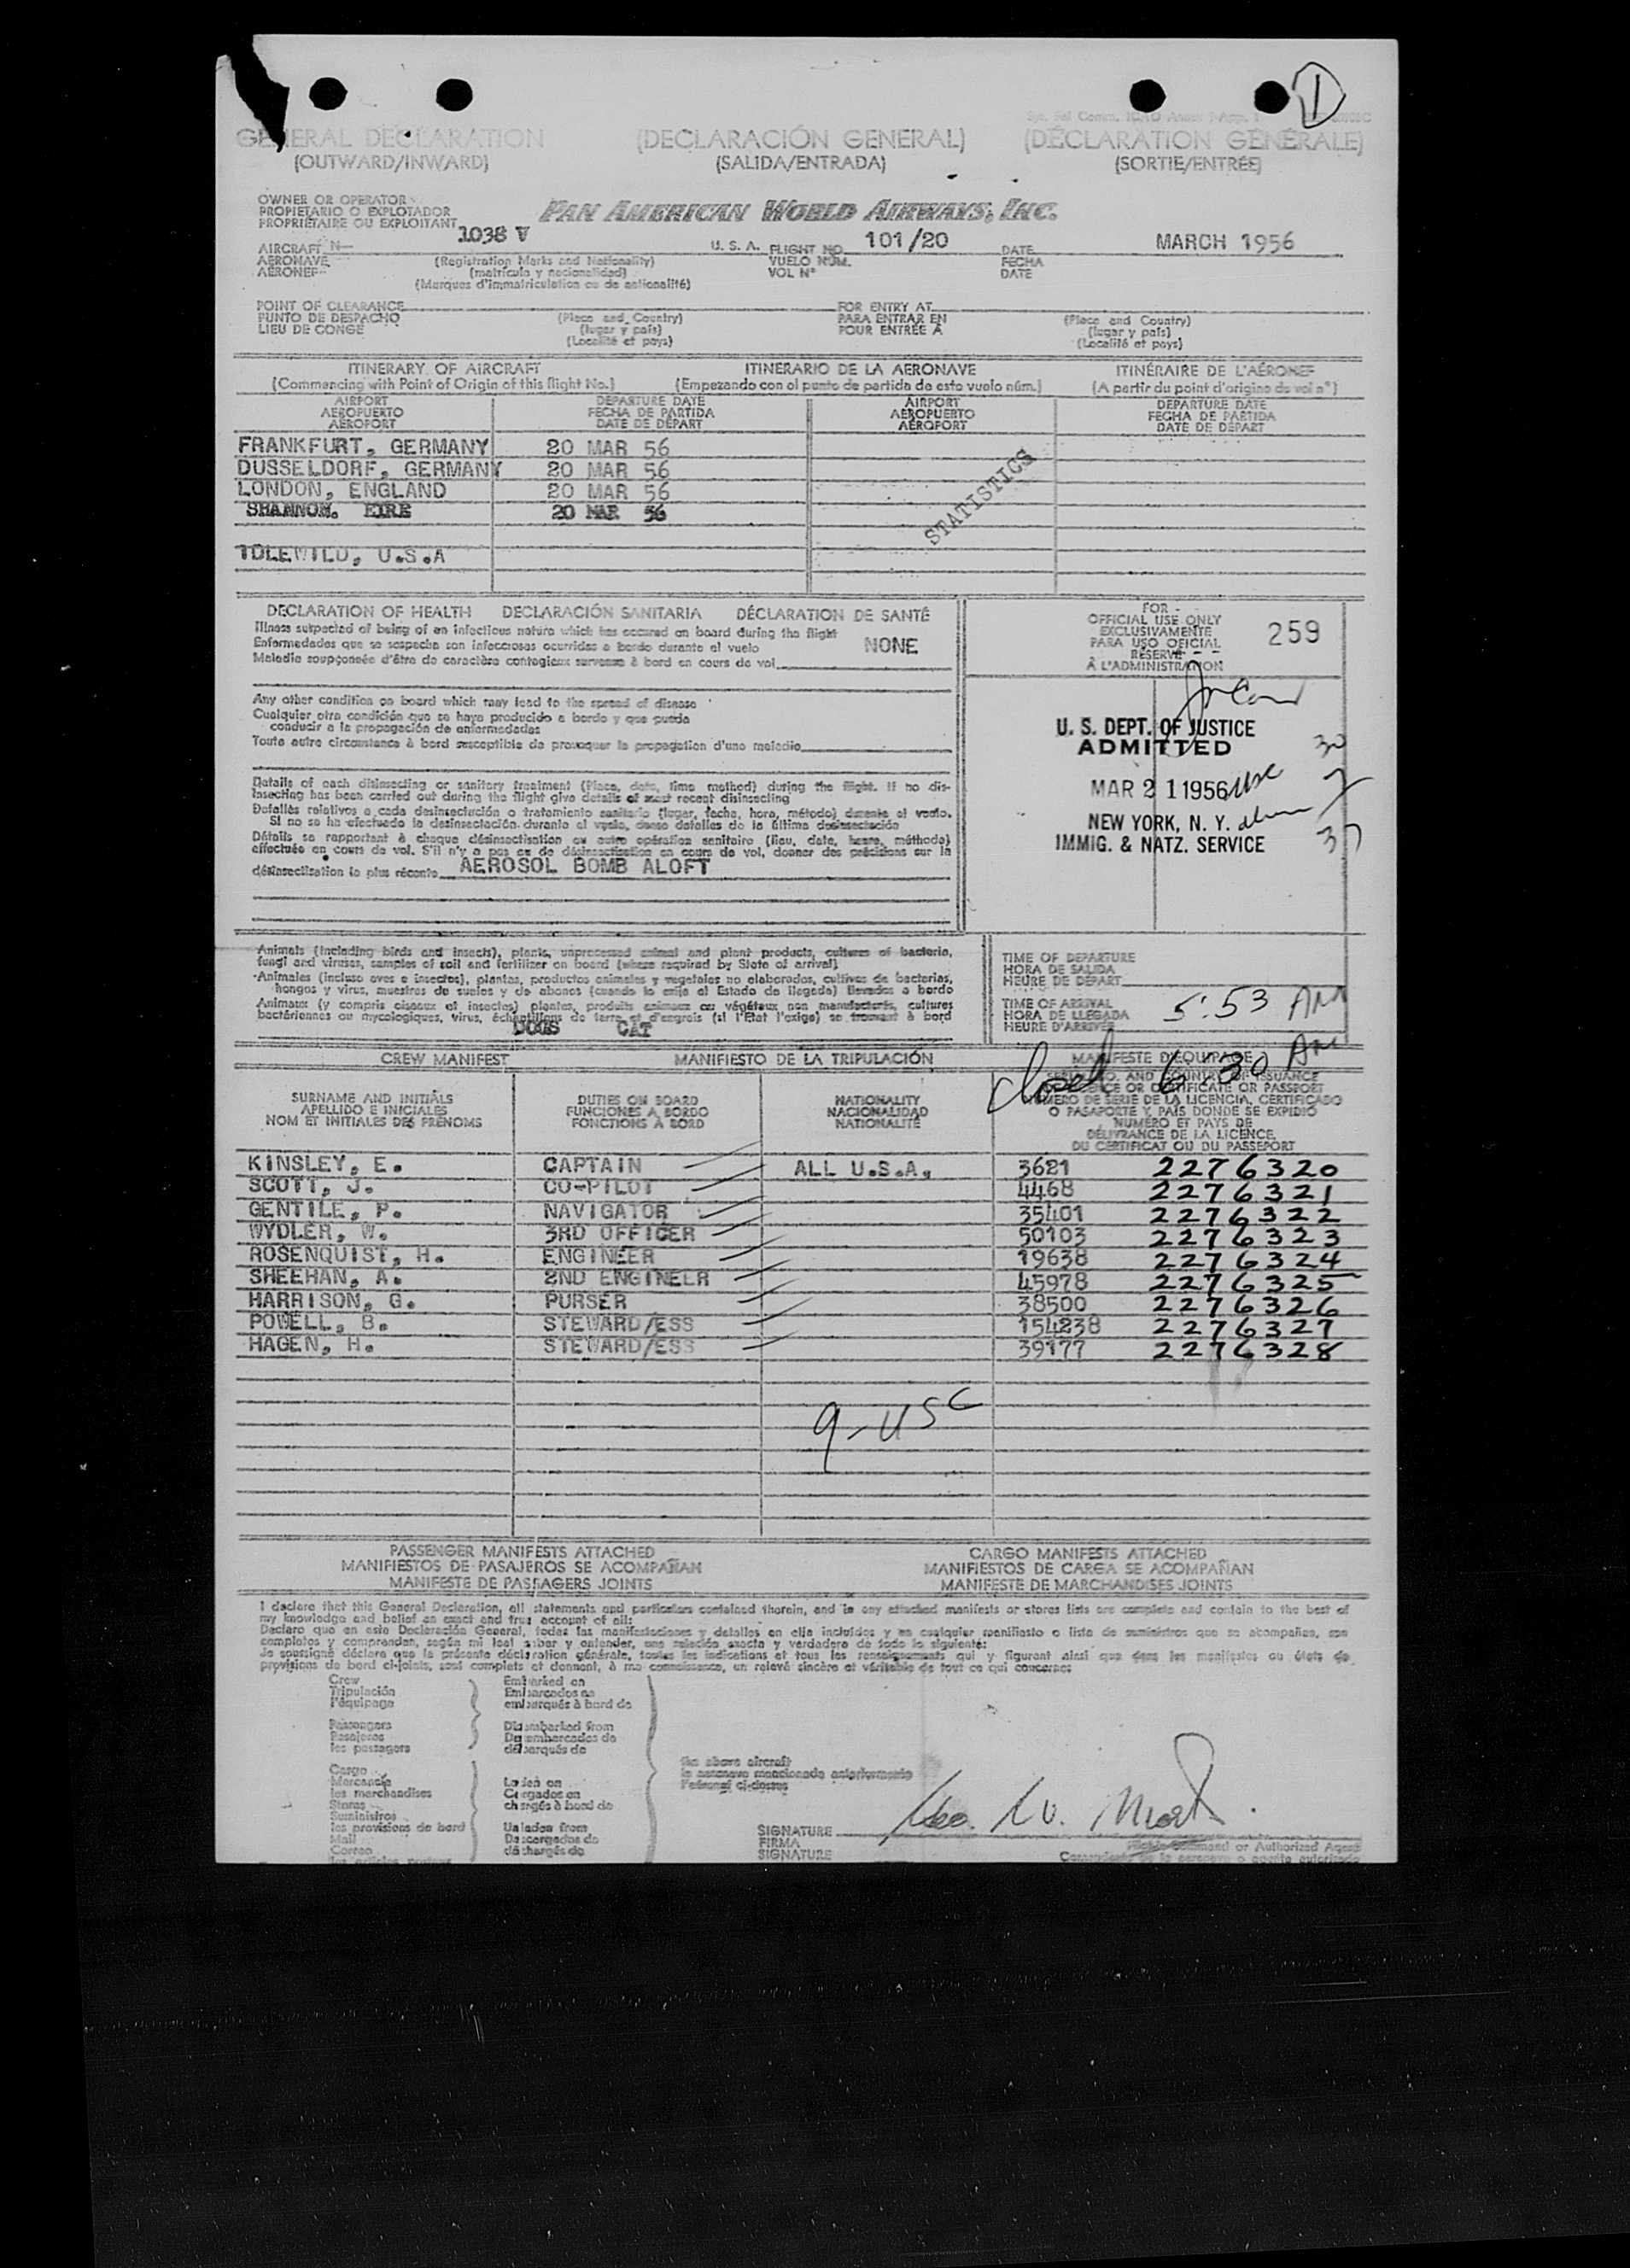 1
GENERAL DECLARATION (DECLARACIÓN GENERAL) (DÉCLARATION GÉNÉRALE)
(OUTWARD/INWARD) (SALIDA/ENTRADA) (SORTIE/ENTRÉE)
OWNER OR OPERATOR
PROPIETARIO O EXPLOTADOR
PROPRIÉTAIRE OU EXPLOITANT
PAN AMERICAN WORLD AIRWAYS, INC.
AIRCRAFT N— 1038 V U. S. A. FLIGHT NO. 101/20 DATE MARCH 1956
AERONAVE (Registration Marks and Nationality) VUELO NÚM. FECHA
AÉRONEF (matrícula y nacionalidad) VOL Nº DATE
(Marques d'immatriculation ou de nationalité)
POINT OF CLEARANCE FOR ENTRY AT
PUNTO DE DESPACHO (Place and Country) PARA ENTRAR EN (Place and Country)
LIEU DE CONGÉ (lugar y país) POUR ENTRÉE À (lugar y país)
(Localité et pays) (Localité et pays)
ITINERARY OF AIRCRAFT ITINERARIO DE LA AERONAVE ITINÉRAIRE DE L'AÉRONEF
(Commencing with Point of Origin of this flight No.) (Empezando con el punto de partida de este vuelo núm.) (A partir du point d'origine du vol nº)
AIRPORT DEPARTURE DATE AIRPORT DEPARTURE DATE
AEROPUERTO FECHA DE PARTIDA AEROPUERTO FECHA DE PARTIDA
AÉROPORT DATE DE DÉPART AÉROPORT DATE DE DÉPART
FRANKFURT, GERMANY 20 MAR 56
DUSSELDORF, GERMANY 20 MAR 56
LONDON, ENGLAND 20 MAR 56
SHANNON. EIRE 20 MAR 56
STATISTICS
IDLEWILD, U.S.A
DECLARATION OF HEALTH DECLARACIÓN SANITARIA DÉCLARATION DE SANTÉ
Illness suspected of being of an infectious nature which has occured on board during the flight
Enfermedades que se sospecha son infecciosas ocurridas a bordo durante el vuelo NONE
Maladie soupçonnée d'être de caractère contagieux survenue à bord en cours de vol
Any other condition on board which may lead to the spread of disease
Cualquier otra condición que se haya producido a bordo y que pueda
conducir a la propagación de enfermedades
Toute autre circonstance à bord susceptible de provoquer la propagation d'une maladie
Details of each disinsecting or sanitary treatment (Place, date, time method) during the flight. If no dis-
insecting has been carried out during the flight give details of most recent disinsecting
Detalles relativos a cada desinsectación o tratamiento sanitario (lugar, fecha, hora, método) durante el vuelo.
Si no se ha efectuado la desinsectación durante el vuelo, dense detalles de la última desinsectación
Détails se rapportant à chaque désinsectisation ou autre opération sanitaire (lieu, date, heure, méthode)
effectuée en cours de vol. S'il n'y a pas eu de désinsectisation en cours de vol, donner des précisions sur la
désinsectisation la plus récente AEROSOL BOMB ALOFT
FOR
OFFICIAL USE ONLY
EXCLUSIVAMENTE
PARA USO OFICIAL
RÉSERVÉ
À L'ADMINISTRATION
259
U. S. DEPT. OF JUSTICE
ADMITTED 30
MAR 21 1956 usc 7
NEW YORK, N. Y. alien
IMMIG. & NATZ. SERVICE 37
Animals (including birds and insects), plants, unprocessed animal and plant products, cultures of bacteria,
fungi and viruses, samples of soil and fertilizer on board (where required by State of arrival)
Animales (incluso aves e insectos), plantas, productos animales y vegetales no elaborados, cultivos de bacterias,
hongos y virus, muestras de suelos y de abonos (cuando lo exija el Estado de llegada) llevados a bordo
Animaux (y compris oiseaux et insectes) plantes, produits animaux ou végétaux non manufacturés, cultures
bactériennes ou mycologiques, virus, échantillons de terre et d'engrais (si l'État l'exige) se trouvant à bord
DOGS CAT
TIME OF DEPARTURE
HORA DE SALIDA
HEURE DE DÉPART
TIME OF ARRIVAL
HORA DE LLEGADA
HEURE D'ARRIVÉE
5:53 AM
closed 6:30 AM
CREW MANIFEST MANIFIESTO DE LA TRIPULACIÓN MANIFESTE D'ÉQUIPAGE
SURNAME AND INITIALS DUTIES ON BOARD NATIONALITY
APELLIDO E INICIALES FUNCIONES A BORDO NACIONALIDAD
NOM ET INITIALES DES PRÉNOMS FONCTIONS À BORD NATIONALITÉ
SERIAL NO. AND COUNTRY OF ISSUANCE
LICENCE OR CERTIFICATE OR PASSPORT
NÚMERO DE SERIE DE LA LICENCIA, CERTIFICADO
O PASAPORTE Y PAÍS DONDE SE EXPIDIÓ
NUMÉRO ET PAYS DE
DÉLIVRANCE DE LA LICENCE,
DU CERTIFICAT OU DU PASSEPORT
KINSLEY, E. CAPTAIN ALL U.S.A. 3621 2276320
SCOTT, J. CO-PILOT 4468 2276321
GENTILE, P. NAVIGATOR 35401 2276322
WYDLER, W. 3RD OFFICER 50103 2276323
ROSENQUIST, H. ENGINEER 19638 2276324
SHEEHAN, A. 2ND ENGINEER 45978 2276325
HARRISON, G. PURSER 38500 2276326
POWELL, B. STEWARD/ESS 154238 2276327
HAGEN, H. STEWARD/ESS 39177 2276328
9-USC
PASSENGER MANIFESTS ATTACHED CARGO MANIFESTS ATTACHED
MANIFIESTOS DE PASAJEROS SE ACOMPAÑAN MANIFIESTOS DE CARGA SE ACOMPAÑAN
MANIFESTE DE PASSAGERS JOINTS MANIFESTE DE MARCHANDISES JOINTS
I declare that this General Declaration, all statements and particulars contained therein, and in any attached manifests or stores lists are complete and contain to the best of
my knowledge and belief an exact and true account of all:
Declaro que en esta Declaración General, todas las manifestaciones y detalles en ella incluidos y en cualquier manifiesto o lista de suministros que se acompañan, son
completos y comprenden, según mi leal saber y entender, una relación exacta y verdadera de todo lo siguiente:
Je soussigné déclare que la présente déclaration générale, toutes les indications et tous les renseignements qui y figurent ainsi que dans les manifestes ou états de
provisions de bord ci-joints, sont complets et donnent, à ma connaissance, un relevé sincère et véritable de tout ce qui concerne:
Crew Embarked on
Tripulación Embarcados en
l'équipage embarqués à bord de
Passengers Disembarked from
Pasajeros Desembarcados de
les passagers débarqués de
the above aircraft
la aeronave mencionada anteriormente
l'aéronef ci-dessus
Cargo
Mercancía Laden on
les marchandises Cargados en
Stores chargés à bord de
Suministros
les provisions de bord Unladen from
Mail Descargados de
Correo déchargés de
SIGNATURE
FIRMA
SIGNATURE
or Authorized Agent